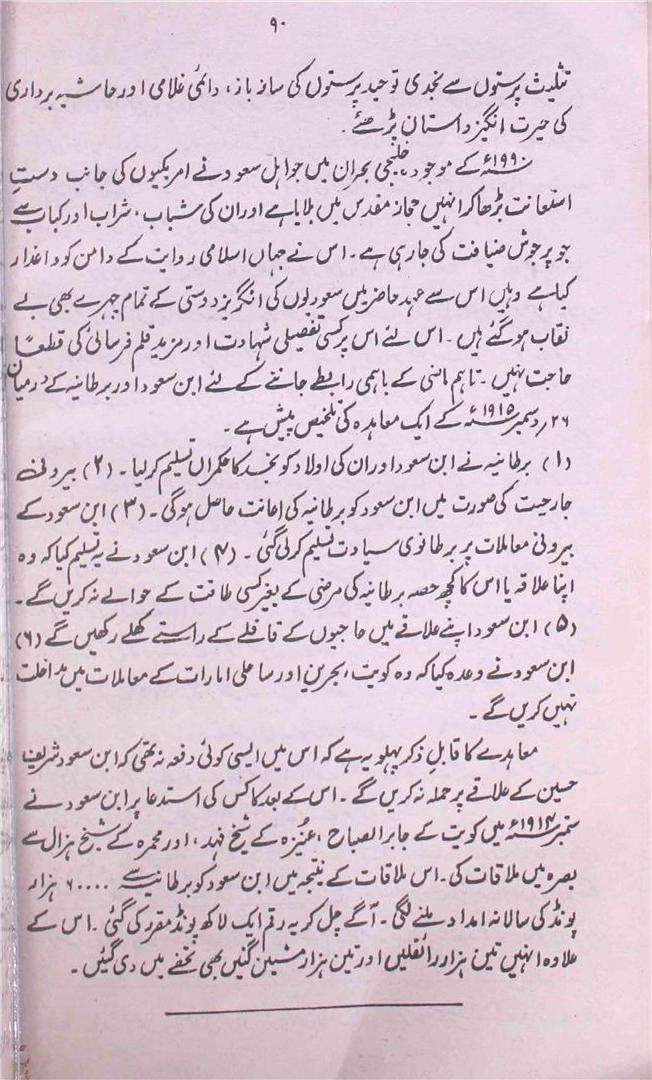 ۹۰
تثلیث پرستوں سے نجدی توحید پرستوں کی ساز باز، دائمی غلامی اور حاشیہ برداری
کی حیرت انگیز داستان پڑھئے۔
۱۹۹۰ء کے موجودہ خلیجی بحران میں جو اہل سعود نے امریکیوں کی جانب دستِ
استعانت بڑھا کر انہیں حجاز مقدس میں بلایا ہے اور ان کی شباب، شراب اور کباب سے
جو پرجوش ضیافت کی جا رہی ہے۔ اس نے جہاں اسلامی روایت کے دامن کو داغدار
کیا ہے وہیں اس سے عہد حاضر میں سعودیوں کی انگریز دوستی کے تمام چہرے بھی بے
نقاب ہو گئے ہیں۔ اس لئے اس پر کسی تفصیلی شہادت اور مزید قلم فرسائی کی قطعاً
حاجت نہیں۔ تاہم ماضی کے باہمی رابطے جاننے کے لئے ابن سعود اور برطانیہ کے درمیان
۲۶؍ دسمبر ۱۹۱۵ء کے ایک معاہدہ کی تلخیص پیش ہے۔
(۱) برطانیہ نے ابن سعود اور ان کی اولاد کو نجد کا حکمراں تسلیم کر لیا۔ (۲) بیرونی
جارحیت کی صورت میں ابن سعود کو برطانیہ کی اعانت حاصل ہوگی۔ (۳) ابن سعود کے
بیرونی معاملات پر برطانوی سیادت تسلیم کر لی گئی۔ (۴) ابن سعود نے یہ تسلیم کیا کہ وہ
اپنا علاقہ یا اس کا کچھ حصہ برطانیہ کی مرضی کے بغیر کسی طاقت کے حوالے نہ کریں گے۔
(۵) ابن سعود اپنے علاقے میں حاجیوں کے قافلے کے راستے کھلے رکھیں گے (۶)
ابن سعود نے وعدہ کیا کہ وہ کویت، بحرین اور ساحلی امارات کے معاملات میں مداخلت
نہیں کریں گے۔
معاہدے کا قابلِ ذکر پہلو یہ ہے کہ اس میں ایسی کوئی دفعہ نہ تھی کہ ابن سعود شریف
حسین کے علاقے پر حملہ نہ کریں گے۔ اس کے بعد کاکس کی استدعا پر ابن سعود نے
ستمبر ۱۹۱۶ء میں کویت کے جابر الصباح، عنیزہ کے شیخ فہد، اور محمرہ کے شیخ ہزال سے
بصرہ میں ملاقات کی۔ اس ملاقات کے نتیجہ میں ابن سعود کو برطانیہ سے ۶۰۰۰۰ ہزار
پونڈ کی سالانہ امداد ملنے لگی۔ آگے چل کر یہ رقم ایک لاکھ پونڈ مقرر کی گئی۔ اس کے
علاوہ انہیں تین ہزار رائفلیں اور تین ہزار مشین گنیں بھی تحفے میں دی گئیں۔